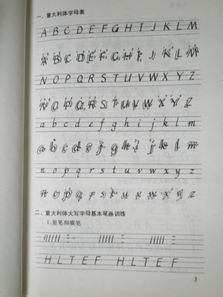 一、意大利体字母表
A B C D E F G H I J K L M
A B C D E F G H I J K L M
N O P Q R S T U V W X Y Z
N O P Q R S T U V W X Y Z
a b c d e f g h i j k l m
a b c d e f g h i j k l m
n o p q r s t u v w x y z
n o p q r s t u v w x y z
二、意大利体大写字母基本笔画训练
1. 竖笔和横笔
H L T E F H L T E F
3